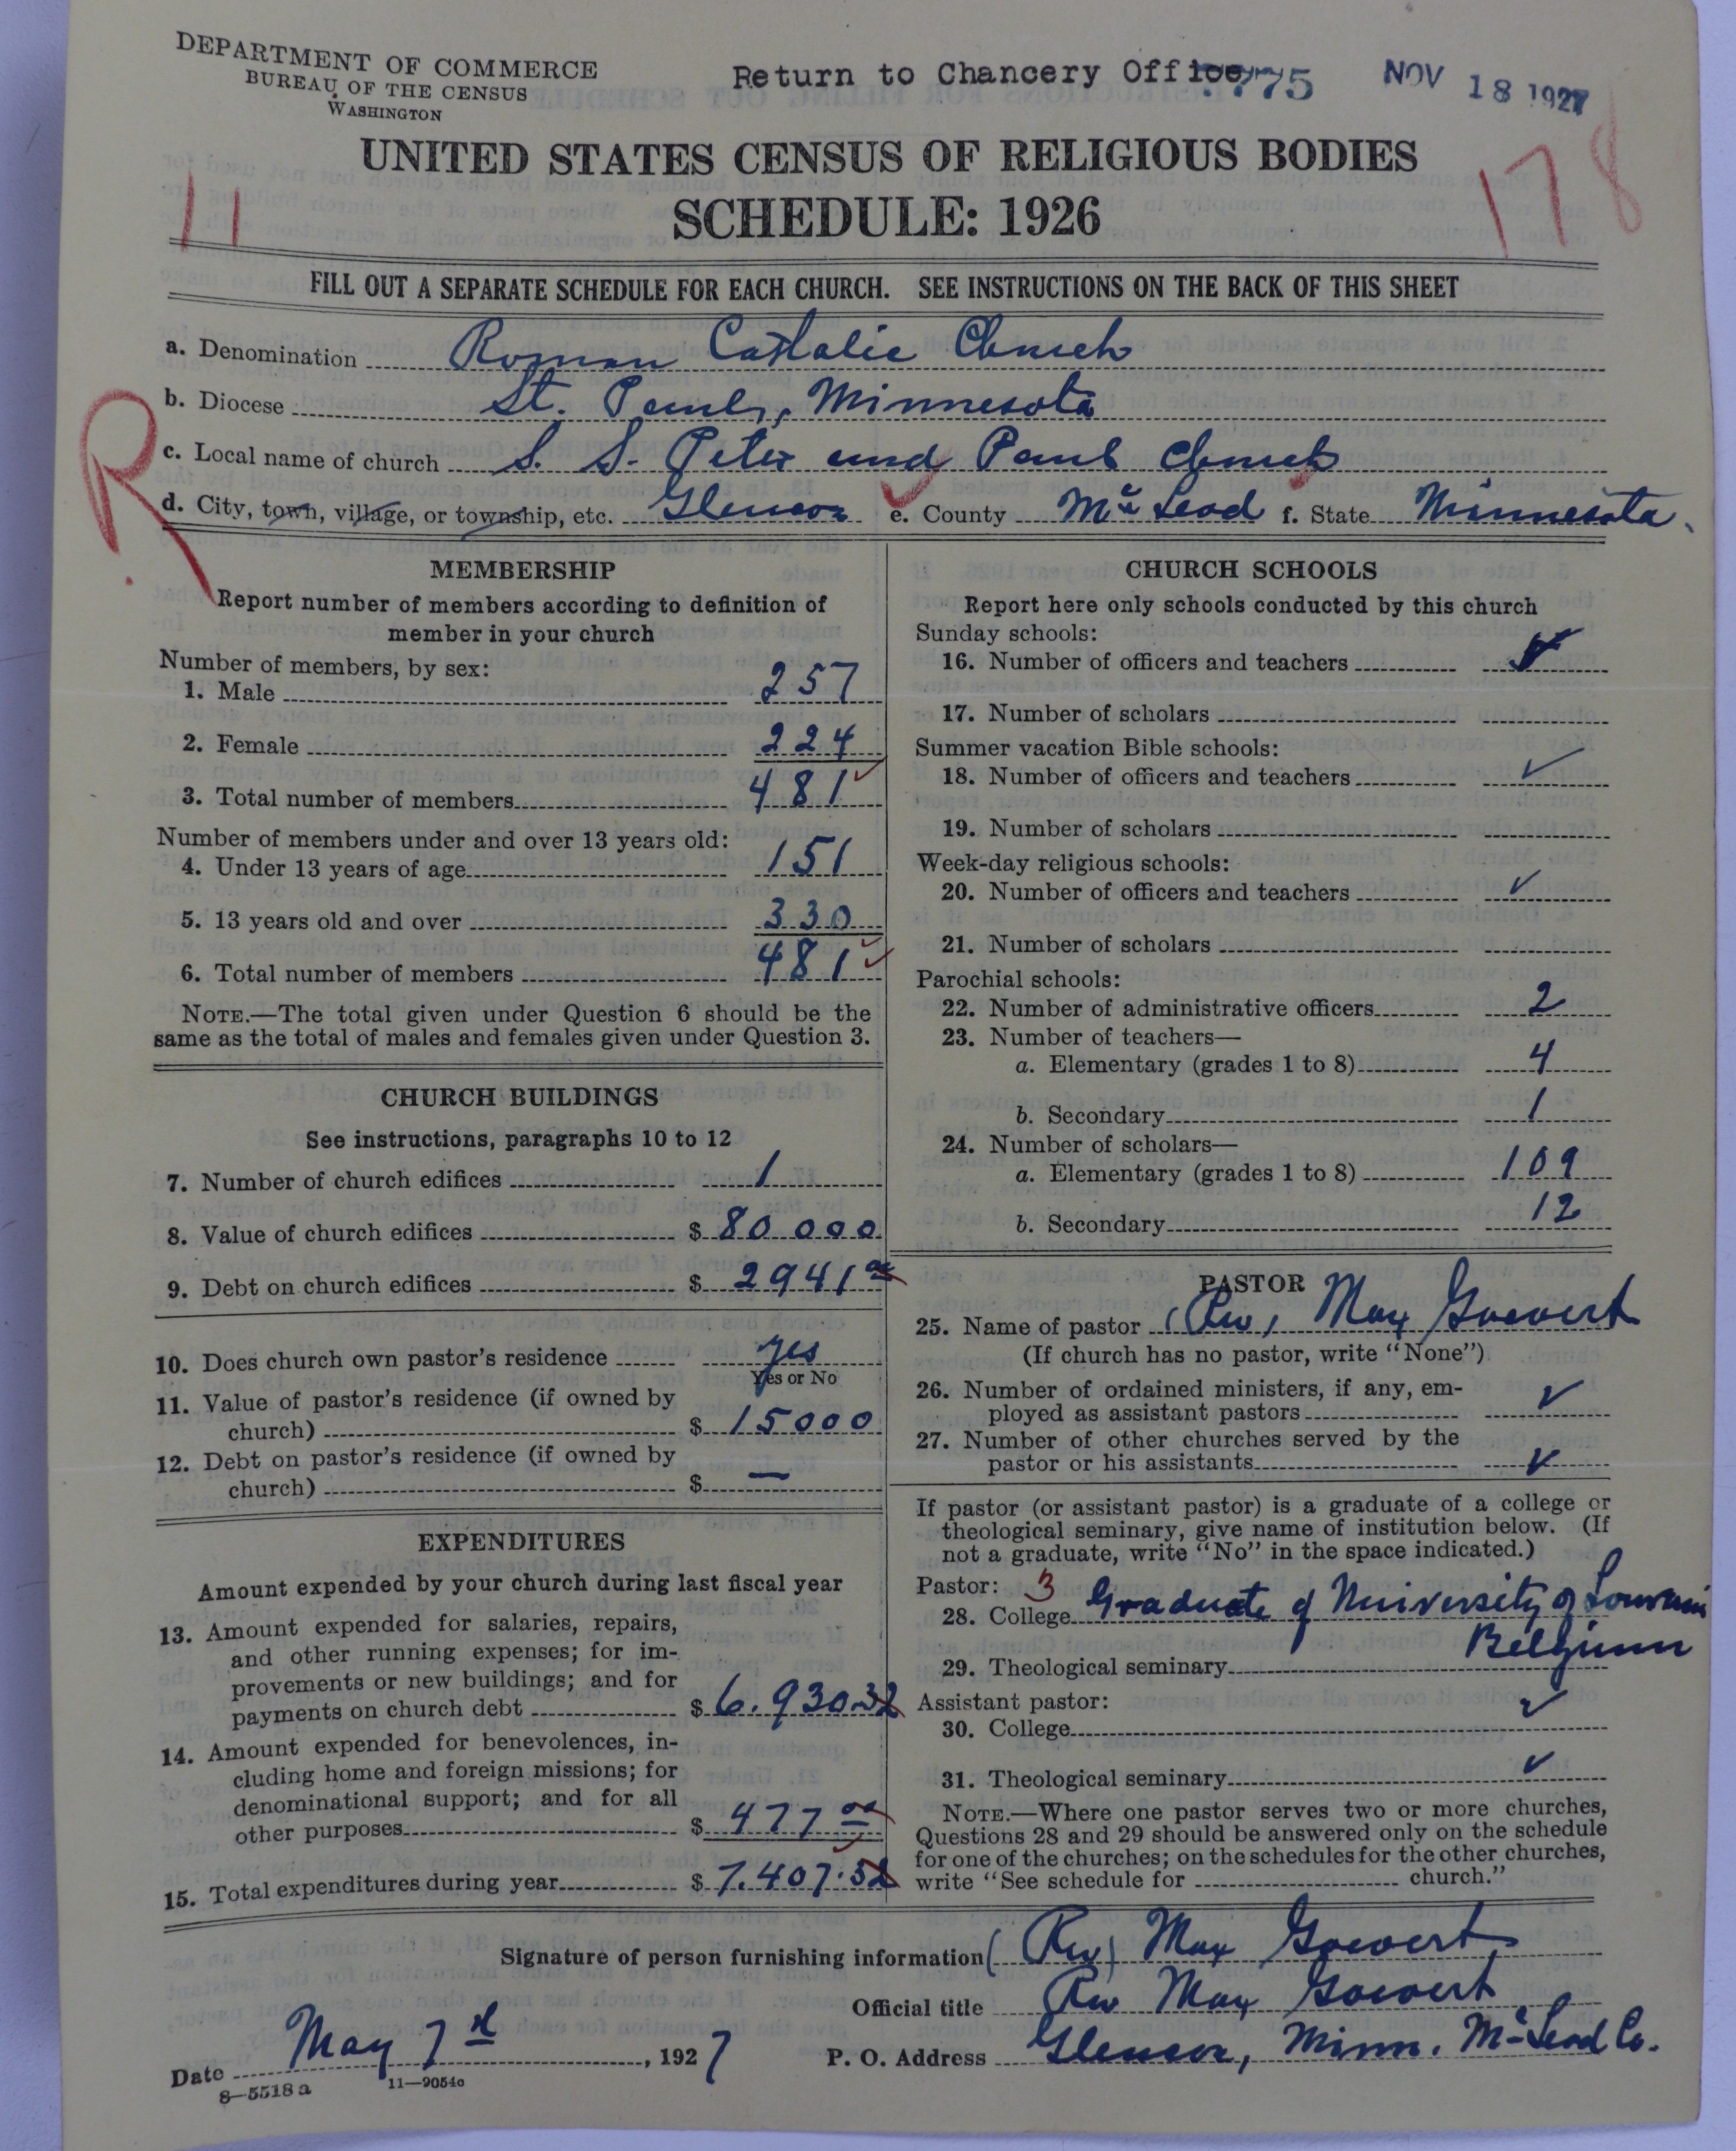 DEPARTMENT OF COMMERCE
BUREAU OF THE CENSUS
WASHINGTON
Return to Chancery Office
775
NOV 18 1927
UNITED STATES CENSUS OF RELIGIOUS BODIES
SCHEDULE: 1926
11
178
FILL OUT A SEPARATE SCHEDULE FOR EACH CHURCH. SEE INSTRUCTIONS ON THE BACK OF THIS SHEET
R
a. Denomination Roman Catholic Church
b. Diocese St. Paul, Minnesota
c. Local name of church S. S. Peter and Paul Church
d. City, town, village, or township, etc. Glencoe e. County McLeod f. State Minnesota.
MEMBERSHIP
Report number of members according to definition of
member in your church
Number of members, by sex:
1. Male 257
2. Female 224
3. Total number of members 481
Number of members under and over 13 years old:
4. Under 13 years of age 151
5. 13 years old and over 330
6. Total number of members 481
NOTE.—The total given under Question 6 should be the
same as the total of males and females given under Question 3.
CHURCH BUILDINGS
See instructions, paragraphs 10 to 12
7. Number of church edifices 1
8. Value of church edifices $ 80 000
9. Debt on church edifices $ 2941 00
10. Does church own pastor's residence yes
Yes or No
11. Value of pastor's residence (if owned by
church) $ 15000
12. Debt on pastor's residence (if owned by
church) $ —
EXPENDITURES
Amount expended by your church during last fiscal year
13. Amount expended for salaries, repairs,
and other running expenses; for im-
provements or new buildings; and for
payments on church debt $ 6.930.32
14. Amount expended for benevolences, in-
cluding home and foreign missions; for
denominational support; and for all
other purposes $ 477 00
15. Total expenditures during year $ 7.407.32
CHURCH SCHOOLS
Report here only schools conducted by this church
Sunday schools:
16. Number of officers and teachers
17. Number of scholars
Summer vacation Bible schools:
18. Number of officers and teachers ✓
19. Number of scholars
Week-day religious schools:
20. Number of officers and teachers ✓
21. Number of scholars
Parochial schools:
22. Number of administrative officers 2
23. Number of teachers—
a. Elementary (grades 1 to 8) 4
b. Secondary 1
24. Number of scholars—
a. Elementary (grades 1 to 8) 109
b. Secondary 12
PASTOR
25. Name of pastor (Rev) Max Goevert
(If church has no pastor, write "None")
26. Number of ordained ministers, if any, em-
ployed as assistant pastors ✓
27. Number of other churches served by the
pastor or his assistants ✓
If pastor (or assistant pastor) is a graduate of a college or
theological seminary, give name of institution below. (If
not a graduate, write "No" in the space indicated.)
Pastor: 3
28. College Graduate of University of Louvain
Belgium
29. Theological seminary
Assistant pastor:
30. College ✓
31. Theological seminary ✓
NOTE.—Where one pastor serves two or more churches,
Questions 28 and 29 should be answered only on the schedule
for one of the churches; on the schedules for the other churches,
write "See schedule for church."
Signature of person furnishing information (Rev) Max Goevert
Official title Rev Max Goevert
Date May 7th, 1927
P. O. Address Glencoe, Minn. McLeod Co.
8—5518a
11—9054o